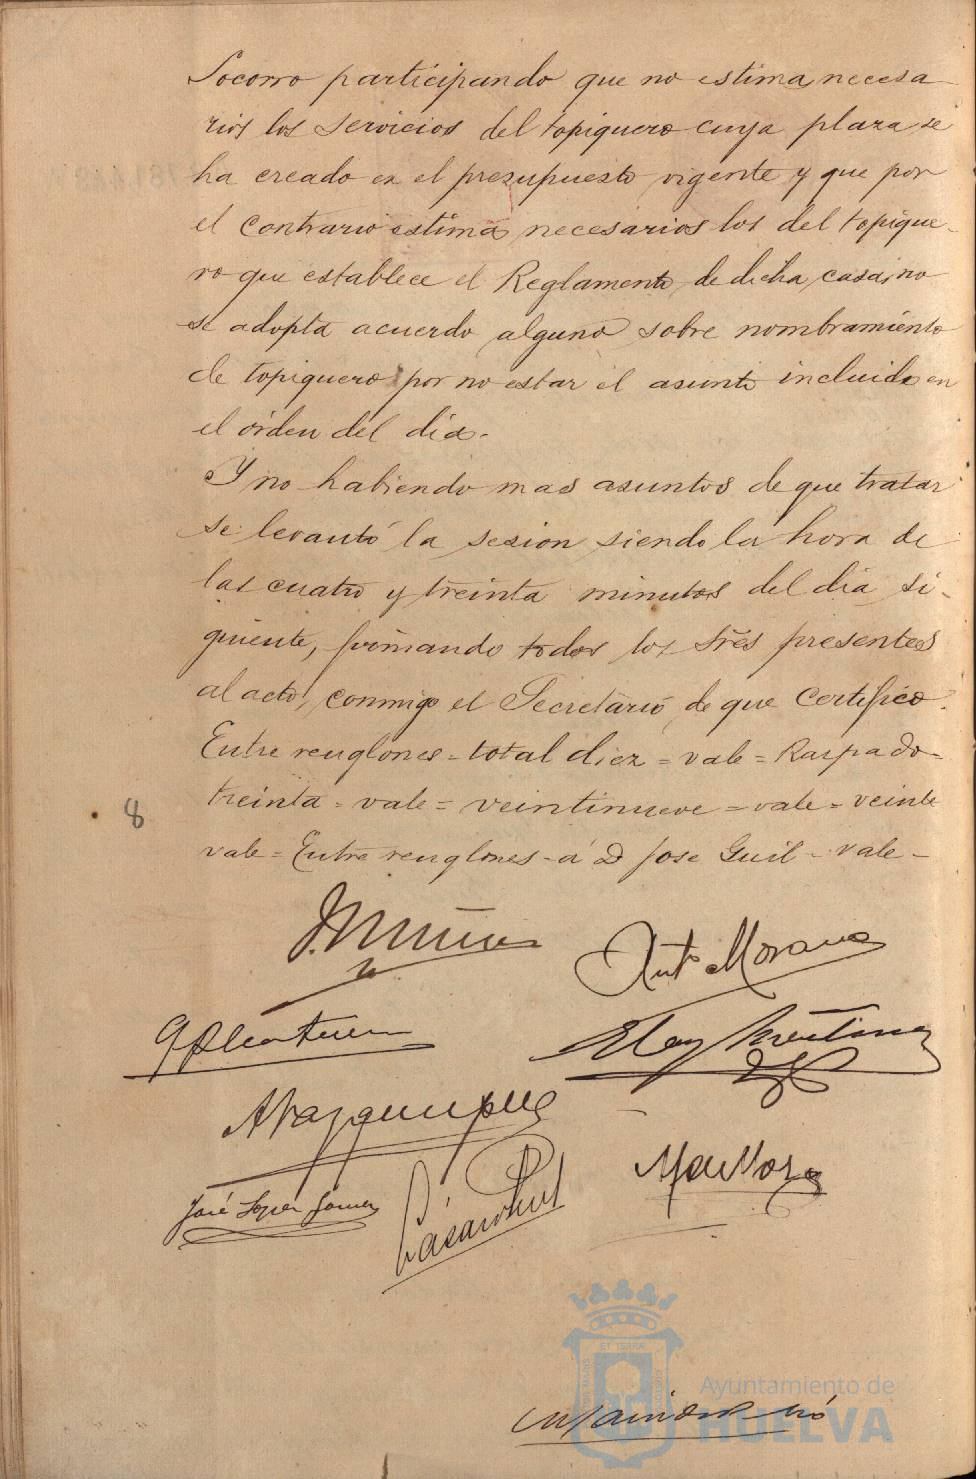 Socorro participando que no estima necesa-
rios los servicios del topiquero cuya plaza se
ha creado en el presupuesto vigente y que por
el contrario estima necesarios los del topique-
ro que establece el Reglamento de dicha casa, no
se adopta acuerdo alguno sobre nombramiento
de topiquero por no estar el asunto incluido en
el órden del dia.
Y no habiendo mas asuntos de que tratar
se levantó la sesion siendo la hora de
las cuatro y treinta minutos del dia si-
guiente, firmando todos los Sres presentes
al acto, conmigo el Secretario, de que certifico.
Entre renglones = total diez = vale = Raspado =
treinta = vale = veintinueve = vale = veinte
8
vale = Entre renglones - á D Jose Guil - vale -
J. Muñiz
Ant° Morano
Eloy Martinez
A Vazquez
José Lopez Gomez
ET TERRA
Ayuntamiento de
HUELVA